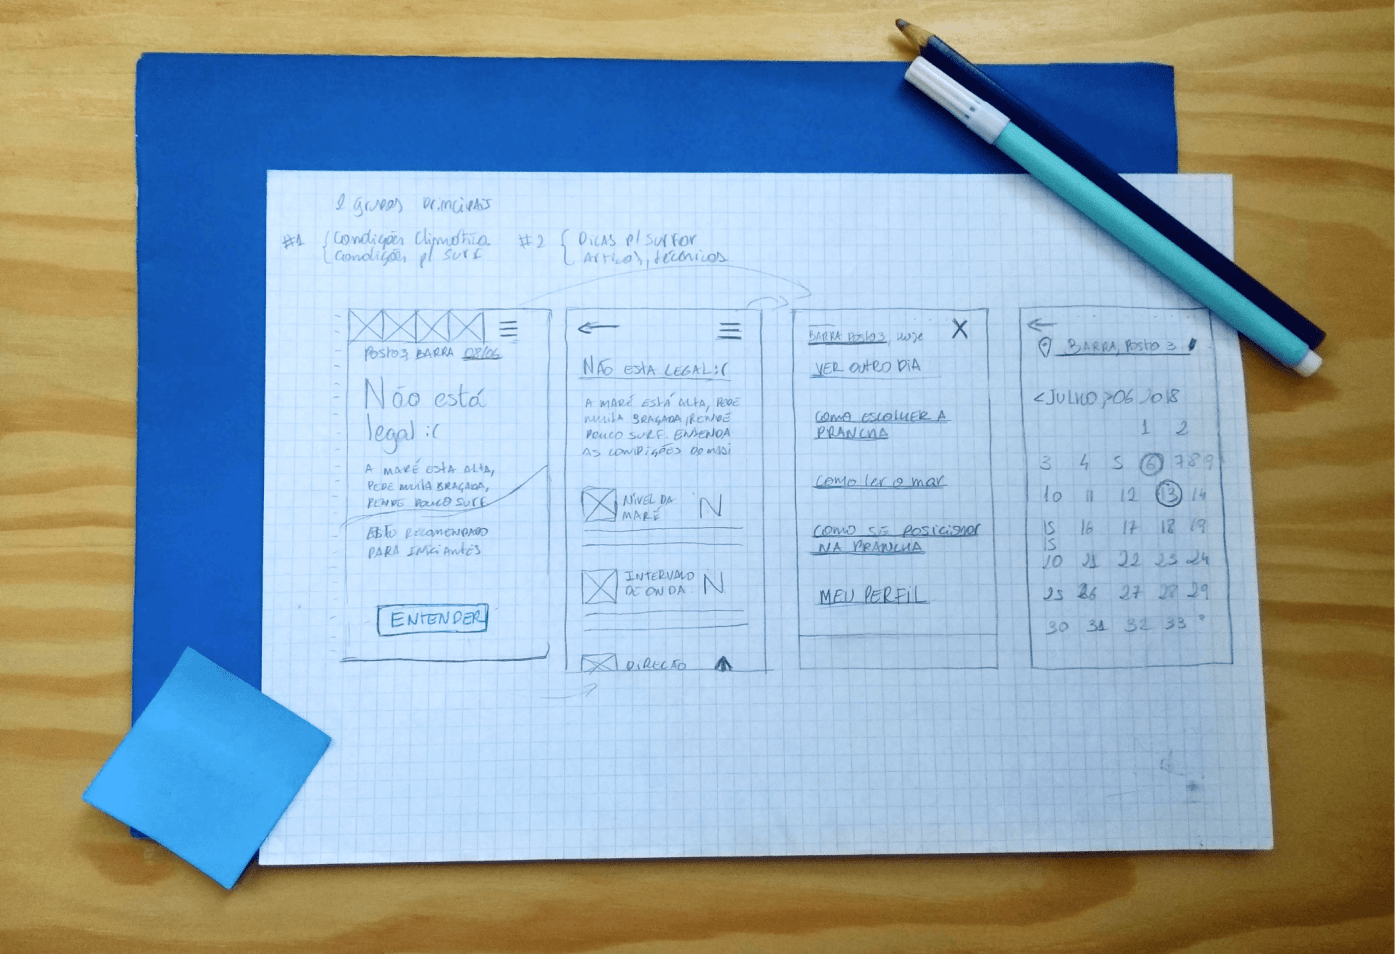 2 grupos principais
#1 { Condição Climática
{ Condição p/ surf
#2 { Dicas p/ surfar
{ Artigos, técnicos
Posto 3, BARRA 08/06
Não está
legal :(
A MARÉ ESTÁ ALTA,
PEDE MUITA BRAÇADA,
RENDE POUCO SURF
RECOMENDADO
PARA INICIANTES
ENTENDER
←
NÃO ESTA LEGAL :(
A MARÉ ESTÁ ALTA, PEDE
MUITA BRAÇADA, RENDE
POUCO SURF. ENTENDA
AS CONDIÇÕES DO MAR
NÍVEL DA
MARÉ N
INTERVALO
DE ONDA N
DIREÇÃO
BARRA POSTO 3, HOJE X
VER OUTRO DIA
COMO ESCOLHER A
PRANCHA
COMO LER O MAR
COMO SE POSICIONAR
NA PRANCHA
MEU PERFIL
←
BARRA, POSTO 3
< JULHO > 06 2018
1 2
3 4 5 6 7 8 9
10 11 12 13 14
15 16 17 18 19
15
20 21 22 23 24
25 26 27 28 29
30 31 32 33